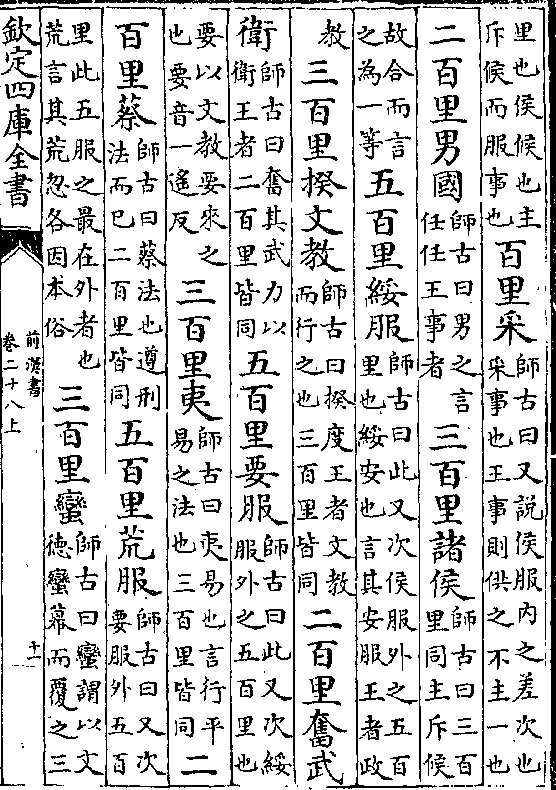 里也侯候也主斥候而服事也百里采師古曰又說侯服内之差次也采事也王事則供之不主一也
二百里男國師古曰男之言任任王事者三百里諸侯師古曰三百里同主斥候
故合而言之為一等五百里綏服師古曰此又次侯服外之五百里也綏安也言其安服王者政
教三百里揆文教師古曰揆度王者文教而行之也三百里皆同二百里奮武
衛師古曰奮其武力以衛王者二百里皆同五百里要服師古曰此又次綏服外之五百里也
要以文教要來之也要音一遙反三百里夷師古曰夷易也言行平易之法也三百里皆同二
百里蔡師古曰蔡法也遵刑法而已二百里皆同五百里荒服師古曰又次要服外五百
里此五服之最在外者也荒言其荒忽各因本俗三百里蠻師古曰蠻謂以文德蠻幕而覆之三
欽定四庫全書
前漢書
卷二十八上
十一